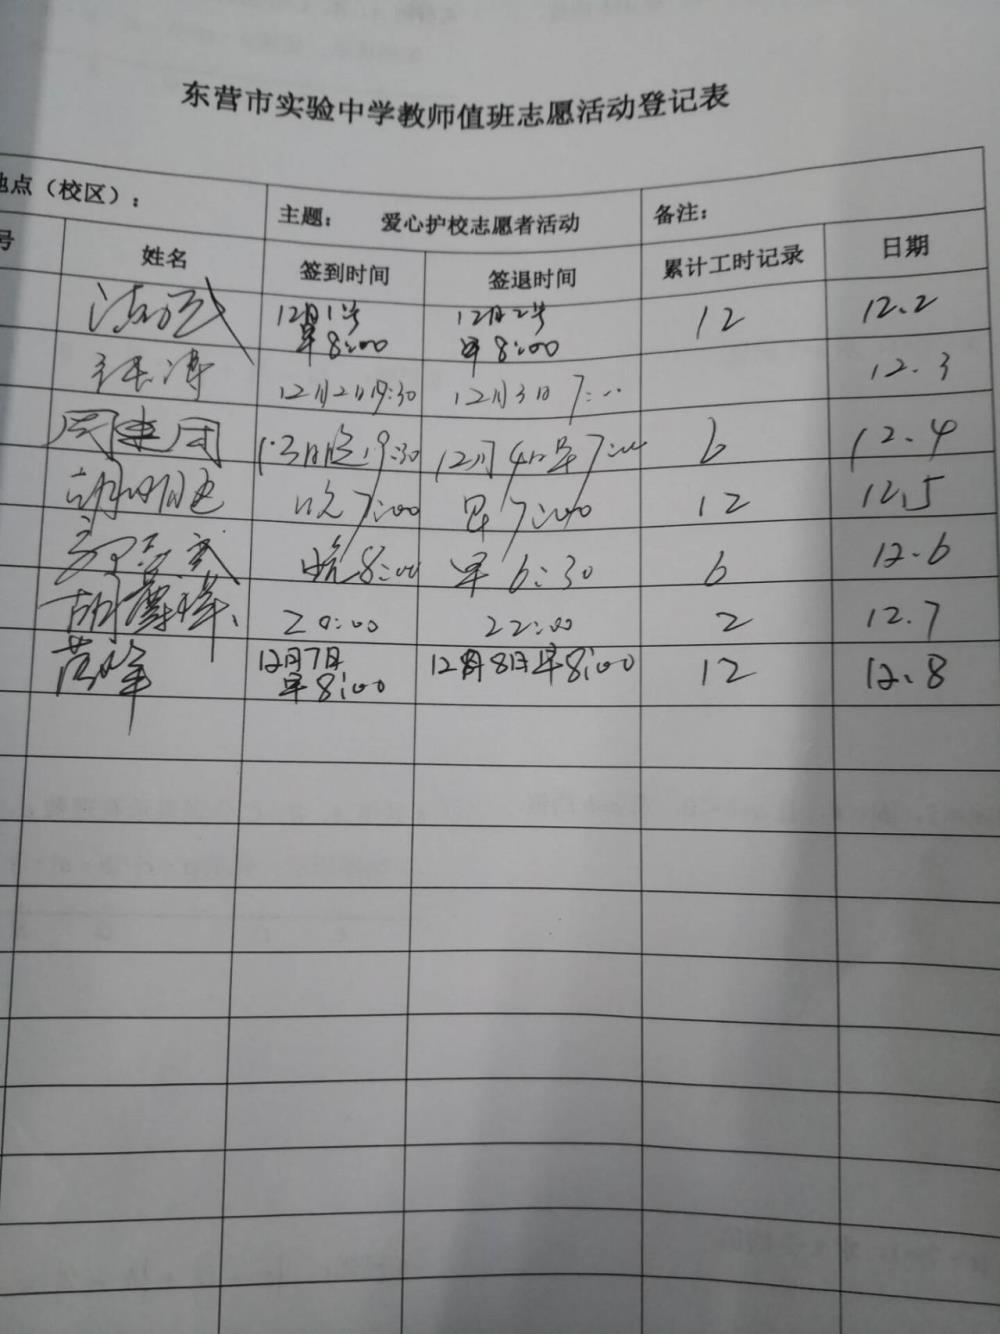 东营市实验中学教师值班志愿活动登记表
地点（校区）：
主题： 爱心护校志愿者活动
备注：
号 姓名 签到时间 签退时间 累计工时记录 日期
12月1号 早8:00 12月2号 早8:00 12 12.2
12月2日19:30 12月3日 7:00 12.3
周建国 12.3日晚19:30 12月4日早7:00 6 12.4
晚7:00 早7:00 12 12.5
晚8:00 早6:30 6 12.6
20:00 22:00 2 12.7
12月7日 早8:00 12月8日早8:00 12 12.8